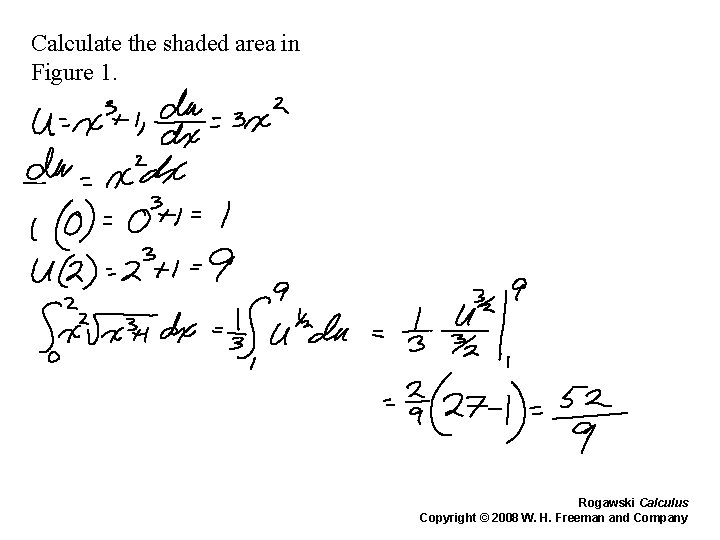 Calculate the shaded area in
Figure 1.
u = x³+1, du/dx = 3x²
du = x²dx
(0) = 0³+1 = 1
u(2) = 2³+1 = 9
∫₀² x²√x³+1 dx = 1/3 ∫₁⁹ u^1/2 du = 1/3 u^3/2 / 3/2 |₁⁹
= 2/9 (27-1) = 52/9
Rogawski Calculus
Copyright © 2008 W. H. Freeman and Company